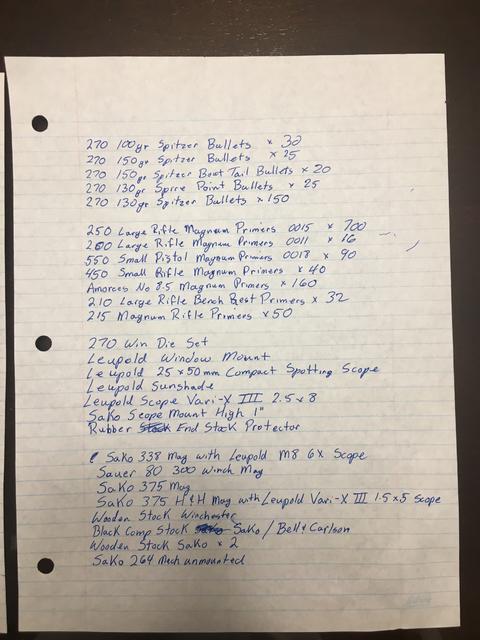 270 100gr Spitzer Bullets × 32
270 150gr Spitzer Bullets × 25
270 150gr Spitzer Boat Tail Bullets × 20
270 130gr Spire Point Bullets × 25
270 130gr Spitzer Bullets × 150
250 Large Rifle Magnum Primers 0015 × 700
200 Large Rifle Magnum Primers 0011 × 16
550 Small Pistol Magnum Primers 0018 × 90
450 Small Rifle Magnum Primers × 40
Amorces No 8.5 Magnum Primers × 160
210 Large Rifle Bench Rest Primers × 32
215 Magnum Rifle Primers × 50
270 Win Die Set
Leupold Window Mount
Leupold 25 x 50 mm Compact Spotting Scope
Leupold Sunshade
Leupold Scope Vari-X III 2.5 x 8
Sako Scope Mount High 1"
Rubber End Stock Protector
Sako 338 Mag with Leupold M8 6X Scope
Sauer 80 300 Winch Mag
Sako 375 Mag
Sako 375 H&H Mag with Leupold Vari-X III 1.5 x 5 Scope
Wooden Stock Winchester
Black Comp Stock Sako / Bell & Carlson
Wooden Stock Sako × 2
Sako 264 Mach unmounted